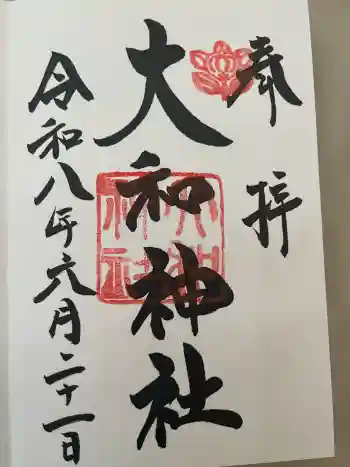 奉拝
大和神社
令和八年六月二十一日